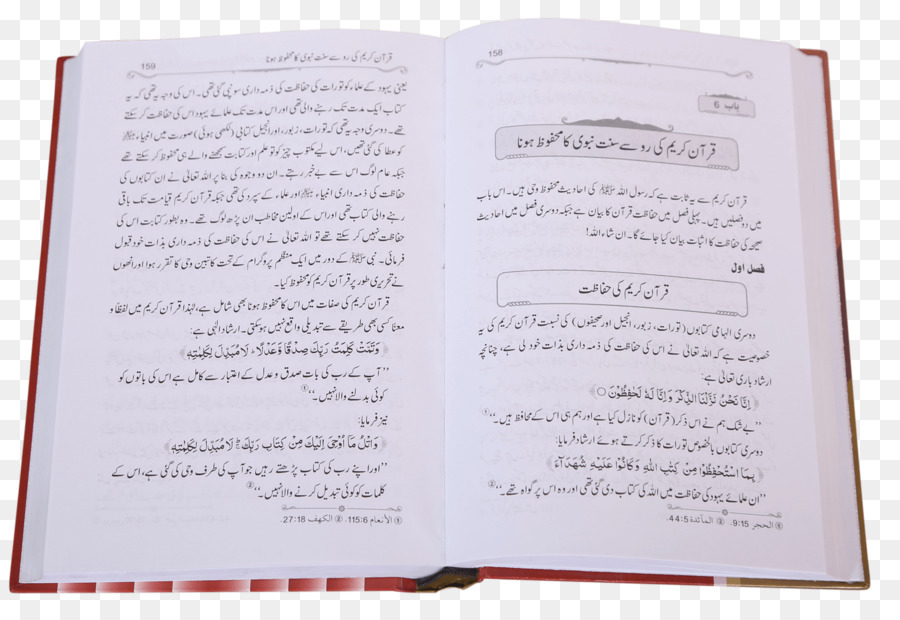 158
باب 6
قرآن کریم کی رو سے سنت نبوی کا محفوظ ہونا
قرآن کریم سے یہ ثابت ہے کہ رسول اللہ ﷺ کی احادیث محفوظ وحی ہیں۔ اس باب
میں دو فصلیں ہیں۔ پہلی فصل میں حفاظت قرآن کا بیان ہے جبکہ دوسری فصل میں احادیث
صحیحہ کی حفاظت کا اثبات بیان کیا جائے گا۔ ان شاء اللہ!
فصل اول
قرآن کریم کی حفاظت
دوسری الہامی کتابوں (تورات، زبور، انجیل اور صحیفوں) کی نسبت قرآن کریم کی یہ
خصوصیت ہے کہ اللہ تعالیٰ نے اس کی حفاظت کی ذمہ داری بذات خود لی ہے، چنانچہ
ارشاد باری تعالیٰ ہے:
﴿إِنَّا نَحْنُ نَزَّلْنَا الذِّكْرَ وَإِنَّا لَهُ لَحٰفِظُونَ ○﴾
’’بے شک ہم نے اس ذکر (قرآن) کو نازل کیا ہے اور ہم ہی اس کے محافظ ہیں۔‘‘①
دوسری کتابوں بالخصوص تورات کا ذکر کرتے ہوئے ارشاد فرمایا:
﴿بِمَا اسْتُحْفِظُوا مِنْ كِتٰبِ اللهِ وَكَانُوا عَلَيْهِ شُهَدَآءَ﴾
’’ان علمائے یہود کی حفاظت میں اللہ کی کتاب دی گئی تھی اور وہ اس پر گواہ تھے۔‘‘②
① الحجر 9:15. ② المآئدة 44:5.
159
قرآن کریم کی رو سے سنت نبوی کا محفوظ ہونا
یعنی یہود کے علماء کو تورات کی حفاظت کی ذمہ داری سونپی گئی تھی۔ اس کی وجہ یہ تھی کہ یہ
کتاب ایک مدت تک رہنے والی تھی اور اس مدت تک علمائے یہود اس کی حفاظت کر سکتے
تھے۔ دوسری وجہ یہ تھی کہ تورات، زبور، اور انجیل کتابی (لکھی ہوئی) صورت میں انبیاء ﷺ
کو عطا کی گئی تھیں، اس لیے مکتوب چیز کو تو علم اور کتابت سمجھنے والے ہی محفوظ کر سکتے تھے
جبکہ عام لوگ اس سے بے خبر رہتے۔ ان دو وجوہ کی بنا پر اللہ تعالیٰ نے ان کتابوں کی
حفاظت کی ذمہ داری انبیاء ﷺ اور علماء کے سپرد کی تھی جبکہ قرآن کریم قیامت تک باقی
رہنے والی کتاب تھی اور اس کے اولین مخاطب ان پڑھ لوگ تھے۔ وہ بطور کتابت اس کی
حفاظت نہیں کر سکتے تھے تو اللہ تعالیٰ نے اس کی حفاظت کی ذمہ داری بذات خود قبول
فرمائی۔ نبی ﷺ کے دور میں ایک منظم پروگرام کے تحت کاتبین وحی کا تقرر ہوا اور انھوں
نے تحریری طور پر قرآن کریم کو محفوظ کیا۔
قرآن کریم کی صفات میں اس کا محفوظ ہونا بھی شامل ہے، لہٰذا قرآن کریم میں لفظاً و
معناً کسی بھی طریقے سے تبدیلی واقع نہیں ہو سکتی۔ ارشاد الٰہی ہے:
﴿وَتَمَّتْ كَلِمَتُ رَبِّكَ صِدْقًا وَّعَدْلًا ۚ لَا مُبَدِّلَ لِكَلِمٰتِهٖ﴾
’’آپ کے رب کی بات صدق و عدل کے اعتبار سے کامل ہے اس کی باتوں کو
کوئی بدلنے والا نہیں۔‘‘①
نیز فرمایا:
﴿وَاتْلُ مَا أُوحِيَ إِلَيْكَ مِنْ كِتَابِ رَبِّكَ ۖ لَا مُبَدِّلَ لِكَلِمٰتِهٖ﴾
’’اور اپنے رب کی کتاب پڑھتے رہیں جو آپ کی طرف وحی کی گئی ہے، اس کے
کلمات کو کوئی تبدیل کرنے والا نہیں۔‘‘②
① الأنعام 115:6. ② الكهف 27:18.